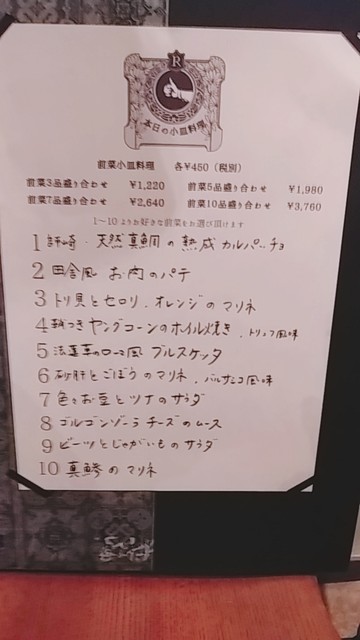 R
本日の小皿料理
前菜小皿料理 各¥450(税別)
前菜3品盛り合わせ ¥1,220 前菜5品盛り合わせ ¥1,980
前菜7品盛り合わせ ¥2,640 前菜10品盛り合わせ ¥3,760
1〜10よりお好きな前菜をお選び頂けます
1 天然真鯛の熟成カルパッチョ
2 田舎風 お肉のパテ
3 トリ貝とセロリ、オレンジのマリネ
4 皮つきヤングコーンのホイル焼き、トリュフ風味
5 法蓮草のローマ風 ブルスケッタ
6 砂肝とごぼうのマリネ、バルサミコ風味
7 色々お豆とツナのサラダ
8 ゴルゴンゾーラチーズのムース
9 ビーツとじゃがいものサラダ
10 真鯵のマリネ